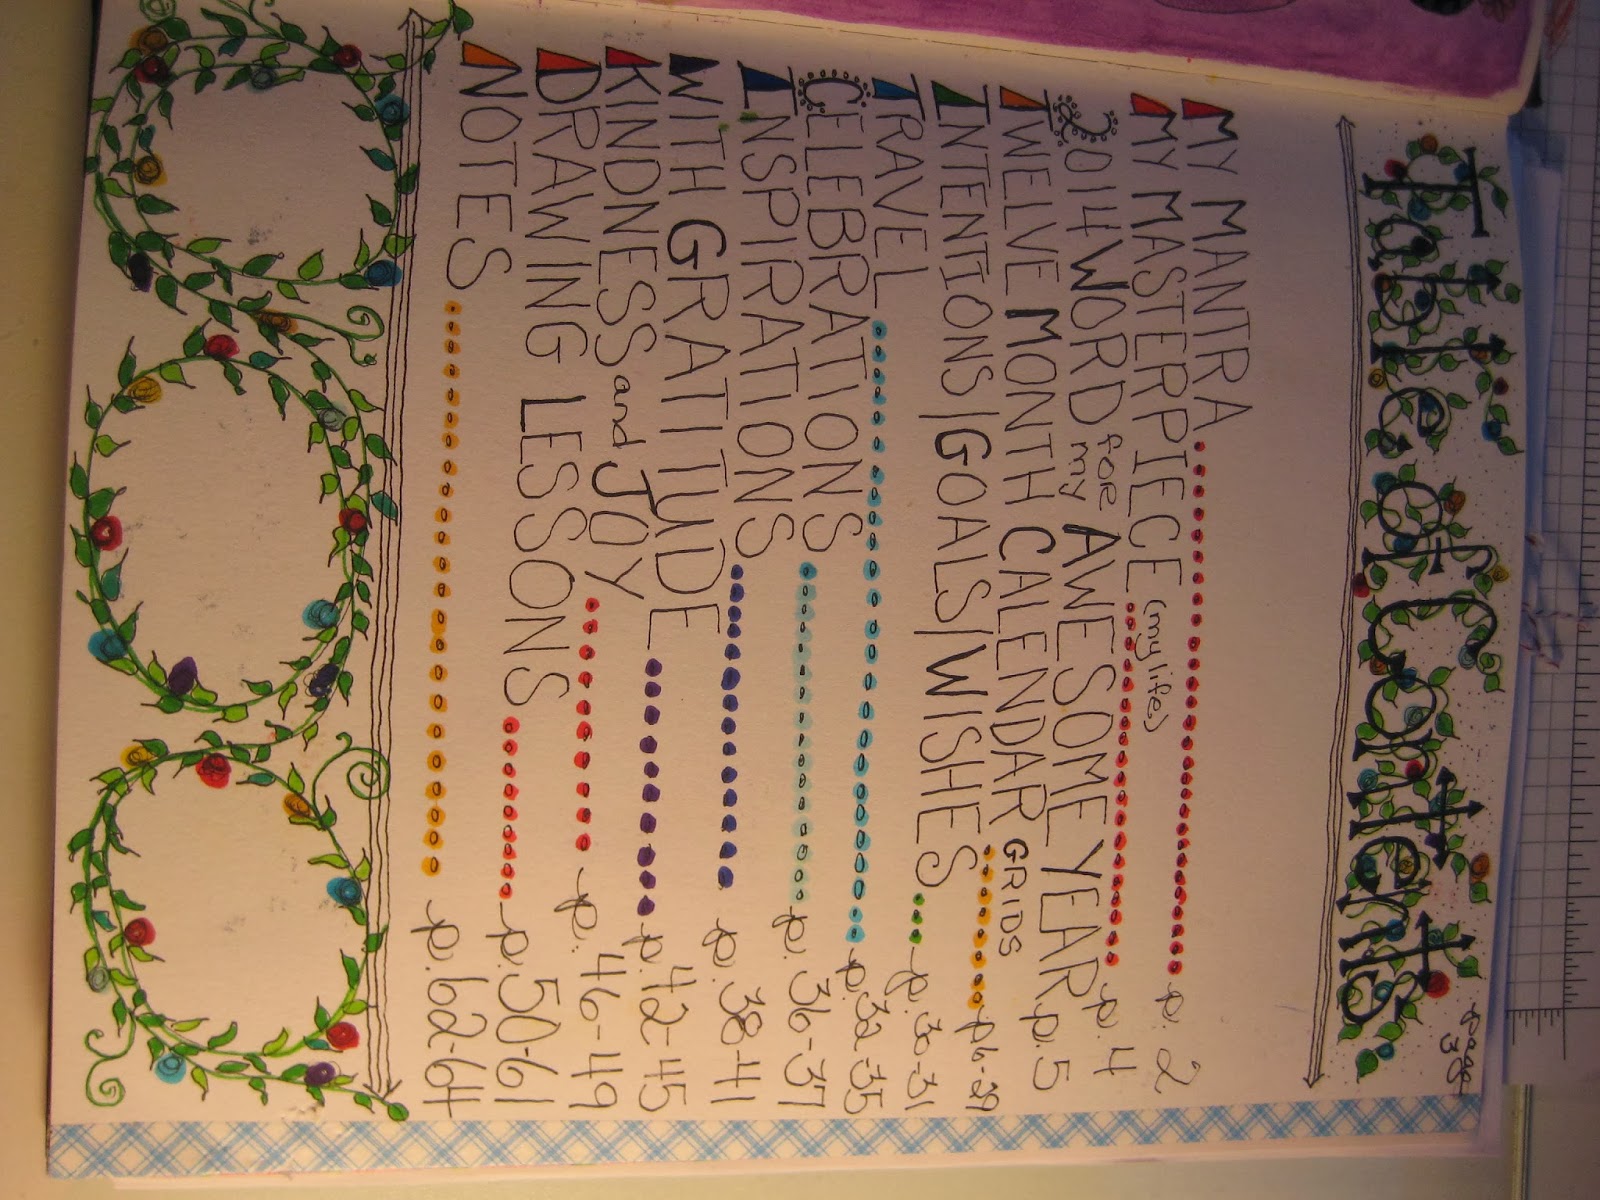 Table of Contents
page 3
MY MANTRA p. 2
MY MASTERPIECE (my life) p. 4
2014 WORD for my AWESOME YEAR p. 5
TWELVE MONTH CALENDAR GRIDS p6-29
INTENTIONS|GOALS|WISHES p. 30-31
TRAVEL p. 32-35
CELEBRATIONS p. 36-37
INSPIRATIONS p. 38-41
WITH GRATITUDE p. 42-45
KINDNESS and JOY p. 46-49
DRAWING LESSONS p. 50-61
NOTES p. 62-64